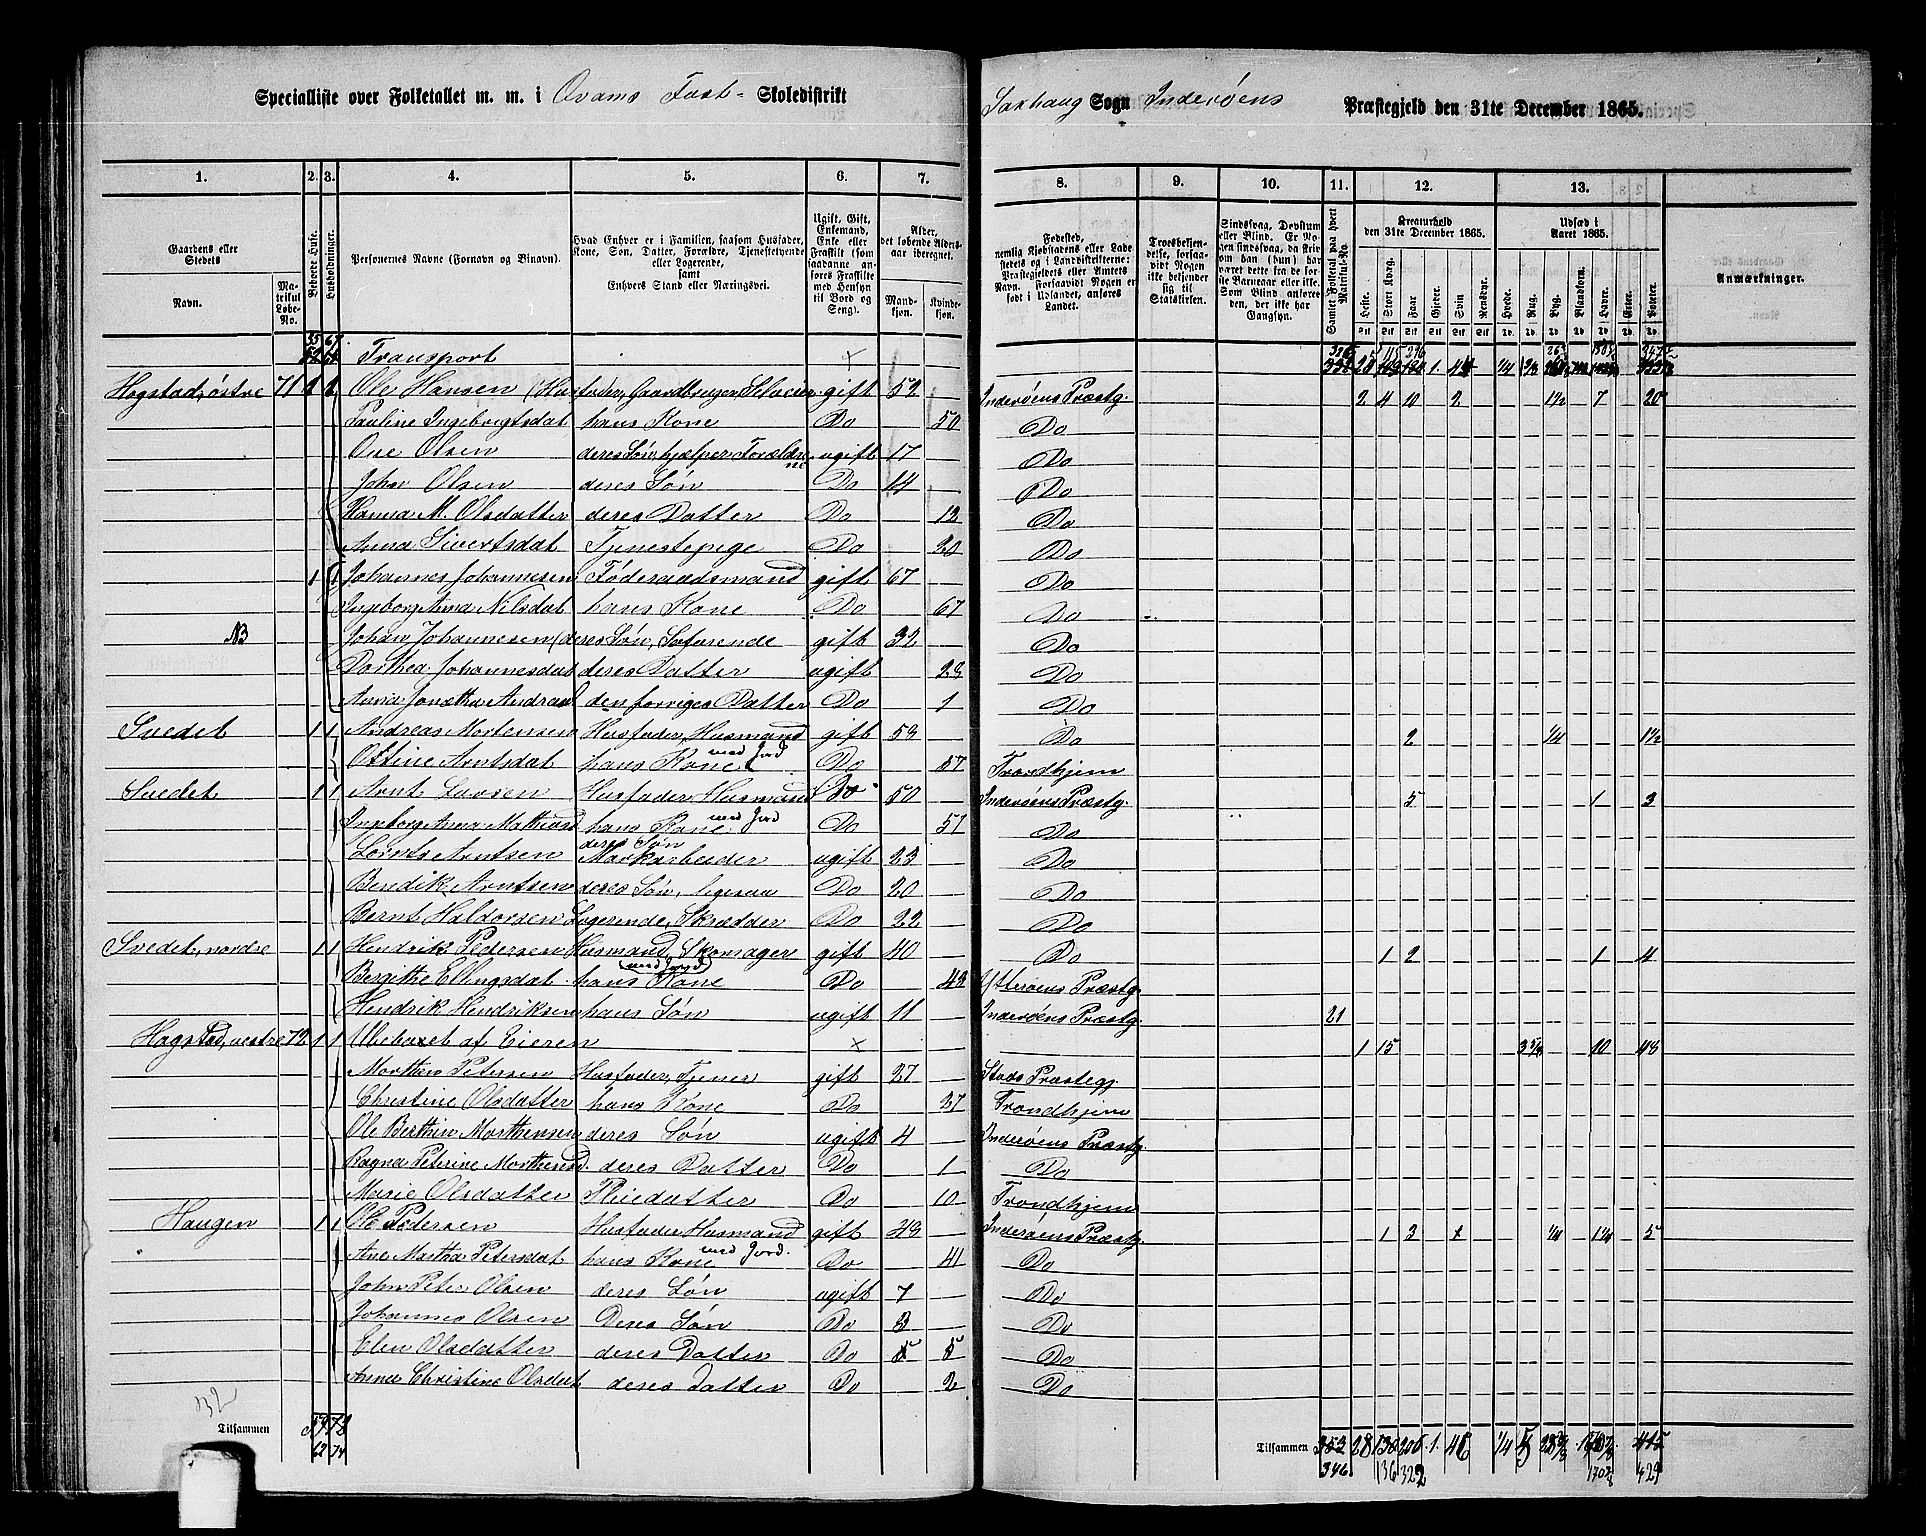 Specialliste over Folketallet m. m. i Qvams Fast- Skoledistrikt
Saxhaug Sogn Inderøens Præstegjeld den 31te December 1865.
1. 2. 3. 4. 5. 6. 7. 8. 9. 10. 11. 12. 13. 1.
Gaardens eller Stedets
Navn. Matrikul Løbe-No.
Beboede Huse.
Husholdninger.
Personernes Navne (Fornavn og Binavn).
Hvad Enhver er i Familien, saasom Husfader, Kone, Søn, Datter, Forældre, Tjenestetyende eller Logerende, samt Enhvers Stand eller Næringsvei.
Ugift, Gift, Enkemand, Enke eller Fraskilt (som saadanne anføres Fraskilte med Hensyn til Bord og Seng).
Alder, det løbende Alders-aar iberegnet.
Mandkjøn. Kvindekjøn.
Fødested, nemlig Kjøbstadens eller Ladestedets og i Landdistrikterne: Præstegjeldets eller Amtets Navn. Forsaavidt Nogen er født i Udlandet, anføres Landet.
Troesbekjendelse, forsaavidt Nogen ikke bekjender sig til Statskirken.
Sindssvag, Døvstum eller Blind.
Samlet Folketal paa hvert Matrikul-No.
Kreaturhold den 31te December 1865.
Heste. Stort Kvæg. Faar. Gjeder. Svin. Rensdyr.
Udsæd i Aaret 1865.
Hvede. Rug. Byg. Blandkorn. Havre. Erter. Poteter.
Anmærkninger.
Transport
Hogstad, østre 71 1 1 Ole Hansen (Husfader, Gaardbruger, Selveier gift 52 Inderøens Præstg. 2 4 10 2 1½ 7 20
Pauline Ingebrigtsdat hans Kone Do 50 Do
Ove Olsen deres Søn, hjelper Forældrene ugift 17 Do
Johan Olsen deres Søn Do 14 Do
Hanna M. Olsdatter deres Datter Do 12 Do
Anna Sivertsdat Tjenestepige Do 20 Do
1 1 Johannes Johannesen Føderaadsmand gift 67 Do
Ingeborg Anna Nilsdat hans Kone Do 67 Do
NB Johan Johannesen (deres Søn, Søfarende gift 32 Do
Dorthea Johannesdat deres Datter ugift 23 Do
Anna Jonetha den forriges Datter Do 1 Do
Svedet 1 1 Andreas Mortensen Husfader, Husmand med Jord gift 59 Do 2 ¼ 1½
Ottine Arntsdat hans Kone Do 57 Trondhjem
Svedet 1 1 Arnt Larsen Husfader Husmand med Jord Do 50 Inderøens Præstg. 5 1 3
Ingeborg Anna hans Kone Do 51 Do
Lornts Arntsen deres Søn Markarbeider ugift 23 Do
Bendik Arntsen deres Søn, ligesaa Do 20 Do
Bernt Haldorsen Logerende, Skrædder Do 22 Do
Svedet, nordre 1 1 Hendrik Pedersen Husmand, Skomager (med Jord) gift 40 Do 1 2 1 4
Bergithe Ellingsdat hans Kone Do 42 Ytterøens Præstg.
Hendrik Hendriksen hans Søn ugift 11 Inderøens Præstg. 21
Hogstad, vestre 72 1 1 Ubeboet af Eieren × 1 15 10 48
Morthen Petersen Husfader, Tjener gift 27 Stods Præstegj.
Christine Olsdatter hans Kone Do 37 Trondhjem
Ole Berthin Morthensen deres Søn ugift 4 Inderøens Præstg.
Ragna Peterine Morthensd. deres Datter Do 1 Do
Marie Olsdatter Pleiedatter Do 10 Trondhjem
Haugen 1 1 Ole Pedersen Husfader, Husmand med Jord. gift 49 Inderøens Præstg. 1 2 ¼ 1¼ 5
Ane Martha Petersdat hans Kone Do 41 Do
John Peter Olsen deres Søn ugift 7 Do
Johannes Olsen Deres Søn Do 3 Do
Elen Olsdatter deres Datter Do 5 Do
Anna Christine Olsdat deres Datter Do 2 Do
132
Tilsammen
62 74
Tilsammen 353 28 130 206 1. 46 ¼
346 136 322 429